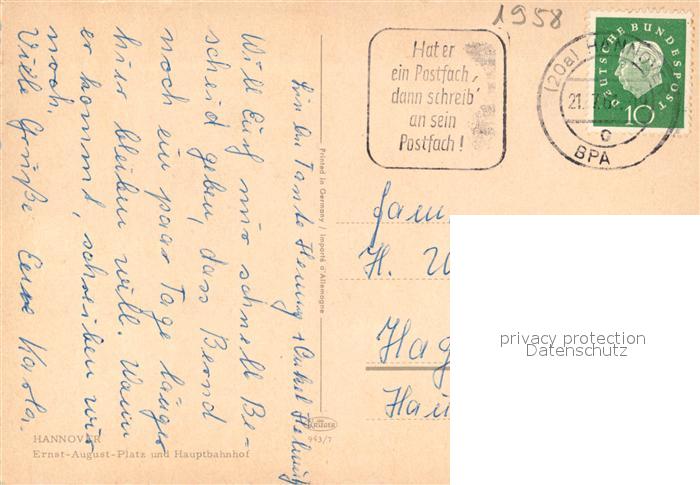 1958
Hat er
ein Postfach,
dann schreib'
an sein
Postfach!
DEUTSCHE BUNDESPOST
10
(20a) HANNOVER
21.
c
BPA
Liebe Tante Henny, Onkel Helmut
Will Euch nur schnell Be-
scheid geben, dass Bernd
noch ein paar Tage länger
hier bleiben will. Wann
er kommt, schreiben wir
noch.
Viele Grüße Eure Karola.
Printed in Germany / Importé d'Allemagne
Fam
H. W
Hag
KRÜGER
943/7
HANNOVER
Ernst-August-Platz und Hauptbahnhof
privacy protection
Datenschutz